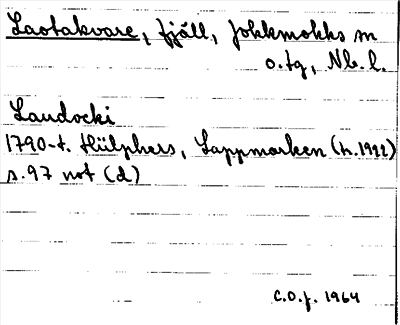 Laotakvare, fjäll, Jokkmokks sn
o. tg, Nb. l.
Laudocki
1790-t. Hülphers, Lappmarken (h. 1922)
s. 97 not (d)
C.O.J. 1964